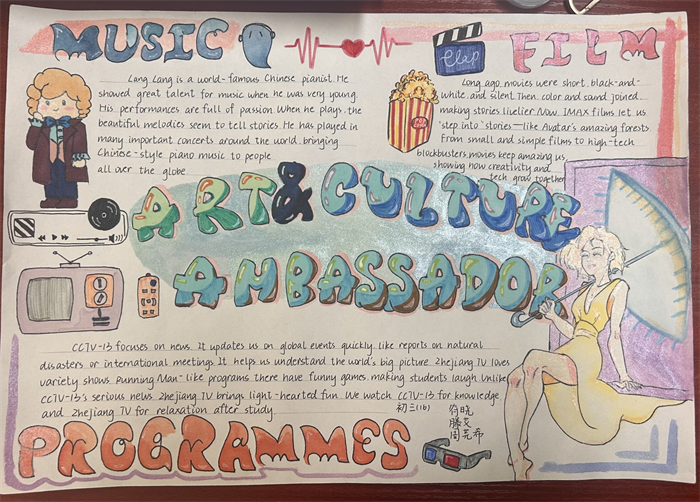 MUSIC
Lang Lang is a world-famous Chinese pianist. He
showed great talent for music when he was very young.
His performances are full of passion. When he plays, the
beautiful melodies seem to tell stories. He has played in
many important concerts around the world, bringing
Chinese-style piano music to people
all over the globe.
Clap
FILM
Long ago, movies were short, black-and-
white, and silent. Then, color and sound joined,
making stories livelier. Now, IMAX films let us
"step into" stories—like Avatar's amazing forests.
From small and simple films to high-tech
blockbusters, movies keep amazing us,
showing how creativity and
tech grow together
ART & CULTURE
AMBASSADOR
CCTV-13 focuses on news. It updates us on global events quickly, like reports on natural
disasters or international meetings. It helps us understand the world's big picture. Zhejiang TV loves
variety shows. Running Man-like programs there have funny games, making students laugh. Unlike
CCTV-13's serious news, Zhejiang TV brings light-hearted fun. We watch CCTV-13 for knowledge
and Zhejiang TV for relaxation after study.
初三(16)
PROGRAMMES